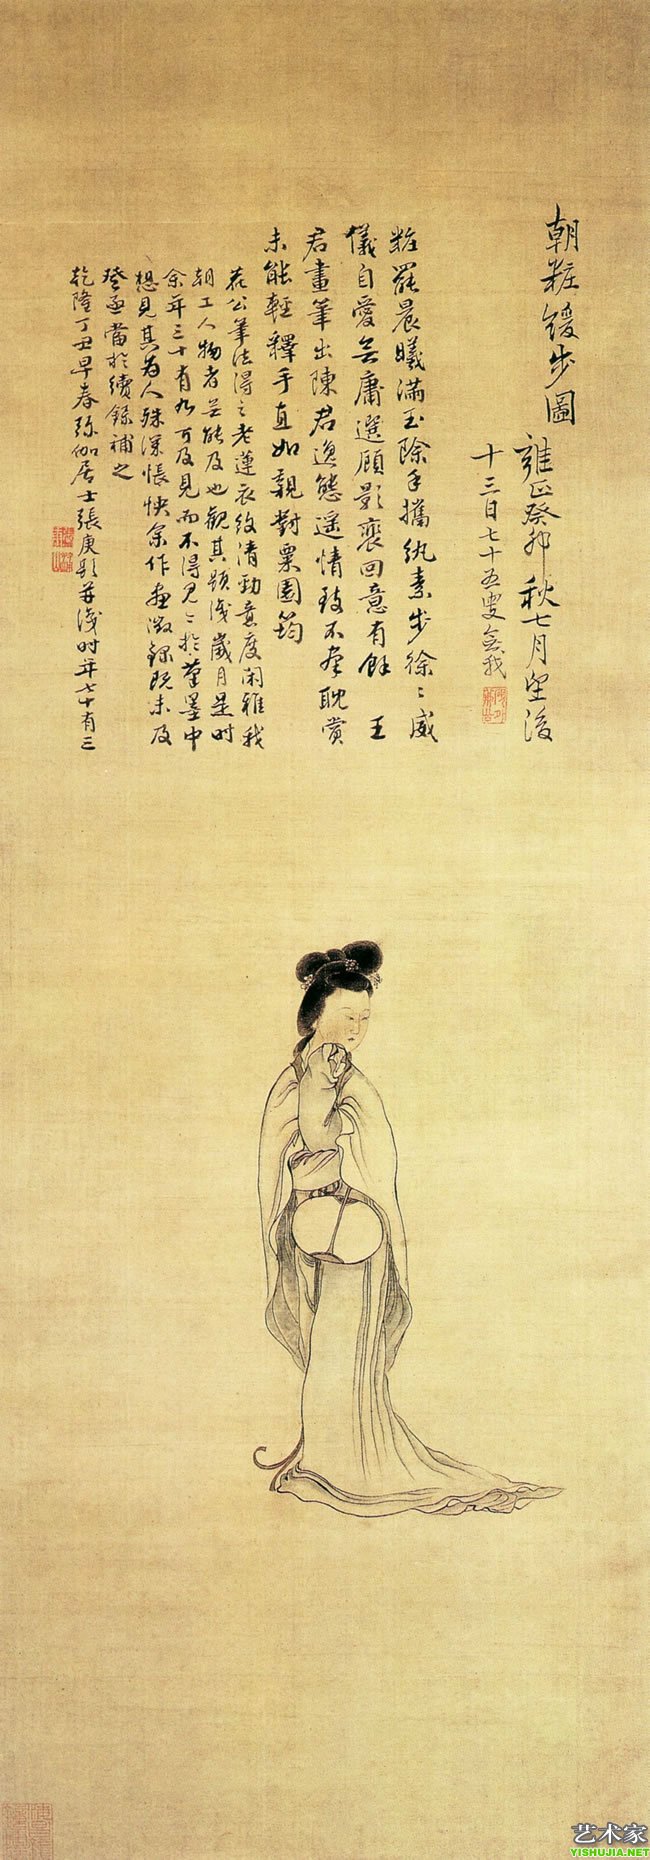 朝粧緩步圖
雍正癸卯秋七月望後
十三日七十五叟無我
粧罷晨曦滿玉除手攜紈素步徐〻威
儀自愛無庸選顧影裵回意有餘 王
君畫筆出陳君逸態遥情致不羣耽賞
未能輕釋手直如親對粟園筠
公筆法得之老蓮衣紋清勁意度閑雅我
朝工人物者無能及也觀其題識歲月是時
余年三十有九可及見而不得見〻於筆墨中
想見其為人殊深悵怏余作畫徵録既未及
登亟當於續録補之
乾隆丁丑早春弥伽居士張庚題并識时年七十有三
艺术家
YISHUJIA.NET